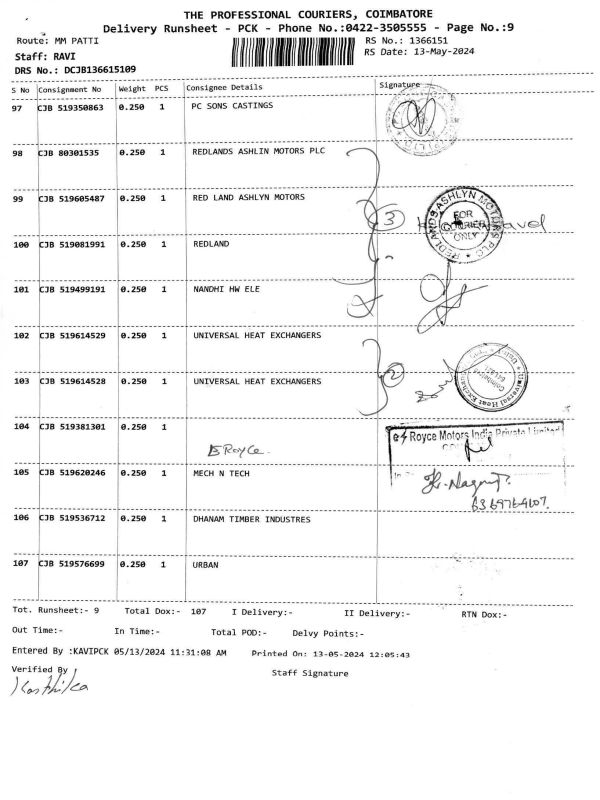 THE PROFESSIONAL COURIERS, COIMBATORE
Delivery Runsheet - PCK - Phone No.:0422-3505555 - Page No.:9
Route: MM PATTI
RS No.: 1366151
Staff: RAVI
RS Date: 13-May-2024
DRS No.: DCJB136615109
S No Consignment No Weight PCS Consignee Details Signature
97 CJB 519350863 0.250 1 PC SONS CASTINGS
98 CJB 80301535 0.250 1 REDLANDS ASHLIN MOTORS PLC
99 CJB 519605487 0.250 1 RED LAND ASHLYN MOTORS
3
REDLANDS ASHLYN MOTORS PLC
FOR
COURIER
ONLY
100 CJB 519081991 0.250 1 REDLAND
101 CJB 519499191 0.250 1 NANDHI HW ELE
102 CJB 519614529 0.250 1 UNIVERSAL HEAT EXCHANGERS
2
103 CJB 519614528 0.250 1 UNIVERSAL HEAT EXCHANGERS
104 CJB 519381301 0.250 1
E Royce.
Royce Motors India Private Limited
105 CJB 519620246 0.250 1 MECH N TECH
106 CJB 519536712 0.250 1 DHANAM TIMBER INDUSTRES
107 CJB 519576699 0.250 1 URBAN
Tot. Runsheet:- 9 Total Dox:- 107 I Delivery:- II Delivery:- RTN Dox:-
Out Time:- In Time:- Total POD:- Delvy Points:-
Entered By :KAVIPCK 05/13/2024 11:31:08 AM Printed On: 13-05-2024 12:05:43
Verified By
Staff Signature